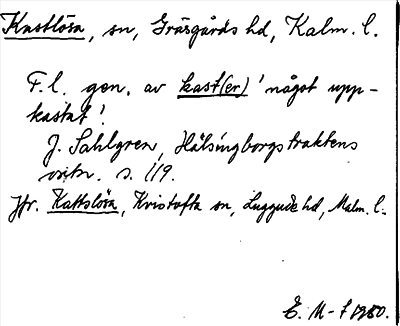 Kastlösa, sn, Gräsgårds hd, Kalm. l.
F.l. gen. av kast(er) 'något upp-
kastat'.
J. Sahlgren, Hälsingborgstraktens
ortn. s. 119.
Jfr. Kattslösa, Kristofta sn, Luggude hd, Malm. l.
E. M-f 1980.